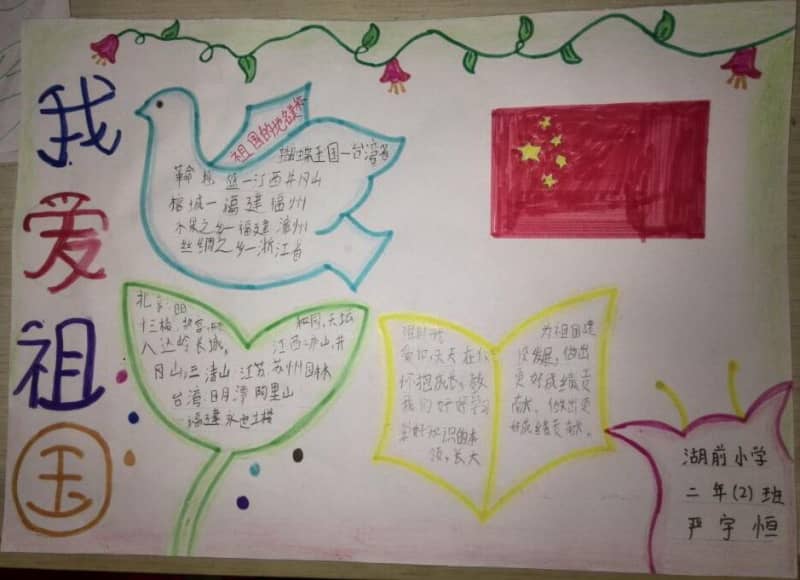 我爱祖国
祖国的地名美称
蝴蝶王国—台湾省
革 摇 篮—江西井冈山
榕城—福建福州
水果之乡—福建漳州
丝绸之乡—浙江省
北京:
十三陵,故宫,
和园,天坛
八达岭长城。
江西:庐山,井
冈山,三清山 江苏苏州园林
台湾日月潭 阿里山
福建永定土楼
天天在
环抱成长,
我们好好学习
学好知识的本
领,长大
为祖国建
设发展,做出
更好成绩贡
献,做出更
好成绩贡献。
湖前小学
二年(2)班
严宇恒